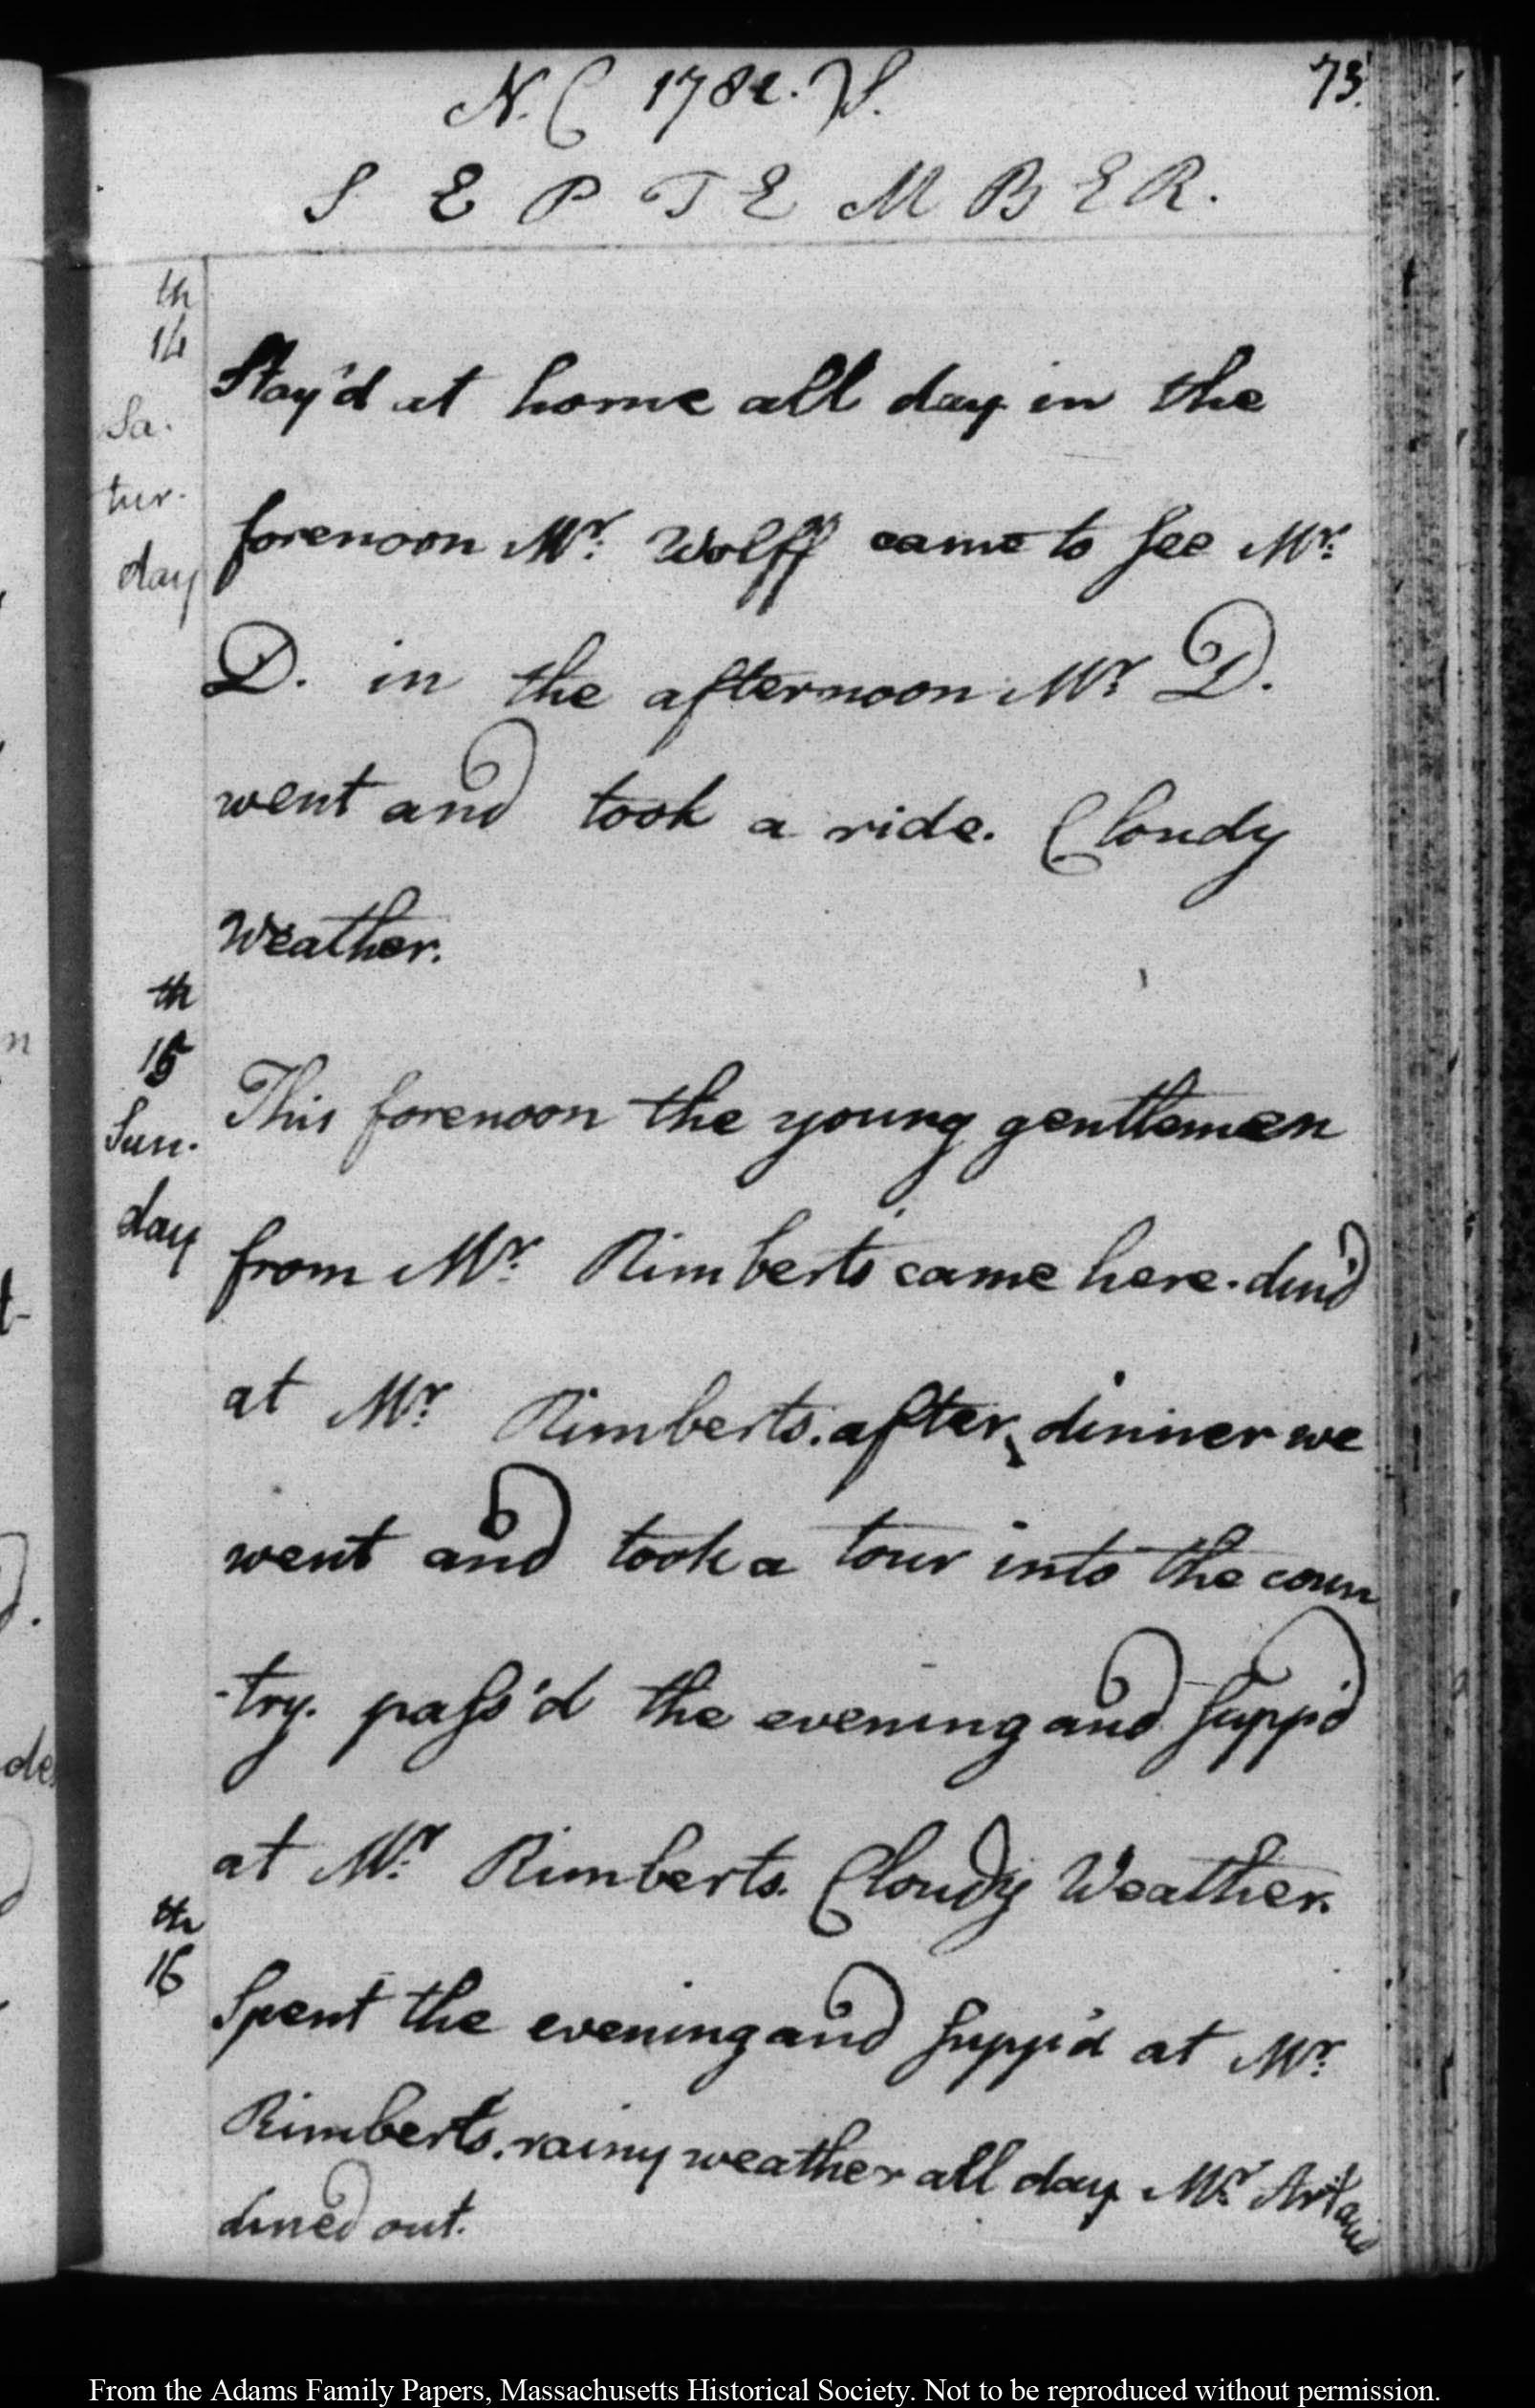 N. ( 1782. ) S.
73.
S E P T E M B E R.
th
14
Sa.
tur.
day
Stay'd at home all day in the
forenoon Mr. Wolff came to see Mr.
D. in the afternoon Mr. D.
went and took a ride. Cloudy
Weather.
th
15
Sun.
day
This forenoon the young gentlemen
from Mr. Rimberts came here. din'd
at Mr. Rimberts. after dinner we
went and took a tour into the coun
-try. pass'd the evening and supp'd
at Mr. Rimberts. Cloudy Weather.
th
16
Spent the evening and supp'd at Mr.
Rimberts. rainy weather all day Mr. Artaud
dined out.
From the Adams Family Papers, Massachusetts Historical Society. Not to be reproduced without permission.